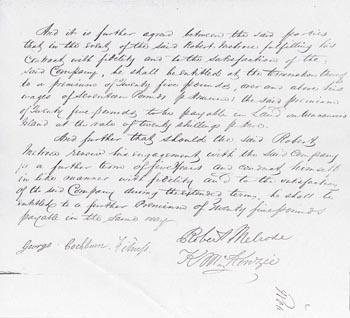 And it is further agreed between the said parties
that in the event of the said Robert Melrose fulfilling his
Contract with fidelity and to the satisfaction of the
said Company, he shall be entitled at the termination thereof
to a premium of Twenty five pounds, over and above his
wages of Seventeen Pounds p Annum: the said premium
of Twenty five pounds to be payable in Land on Vancouvers
Island at the rate of twenty shillings p Acre.
And further that should the said Robert
Melrose renew his engagement with the said Company
for a further term of five Years and conduct himself
in like manner with fidelity and to the satisfaction
of the said Company during the extended term, he shall be
entitled to a further Premium of Twenty five pounds
payable in the same way
George Cockburn Witness.
Robert Melrose
K McKenzie